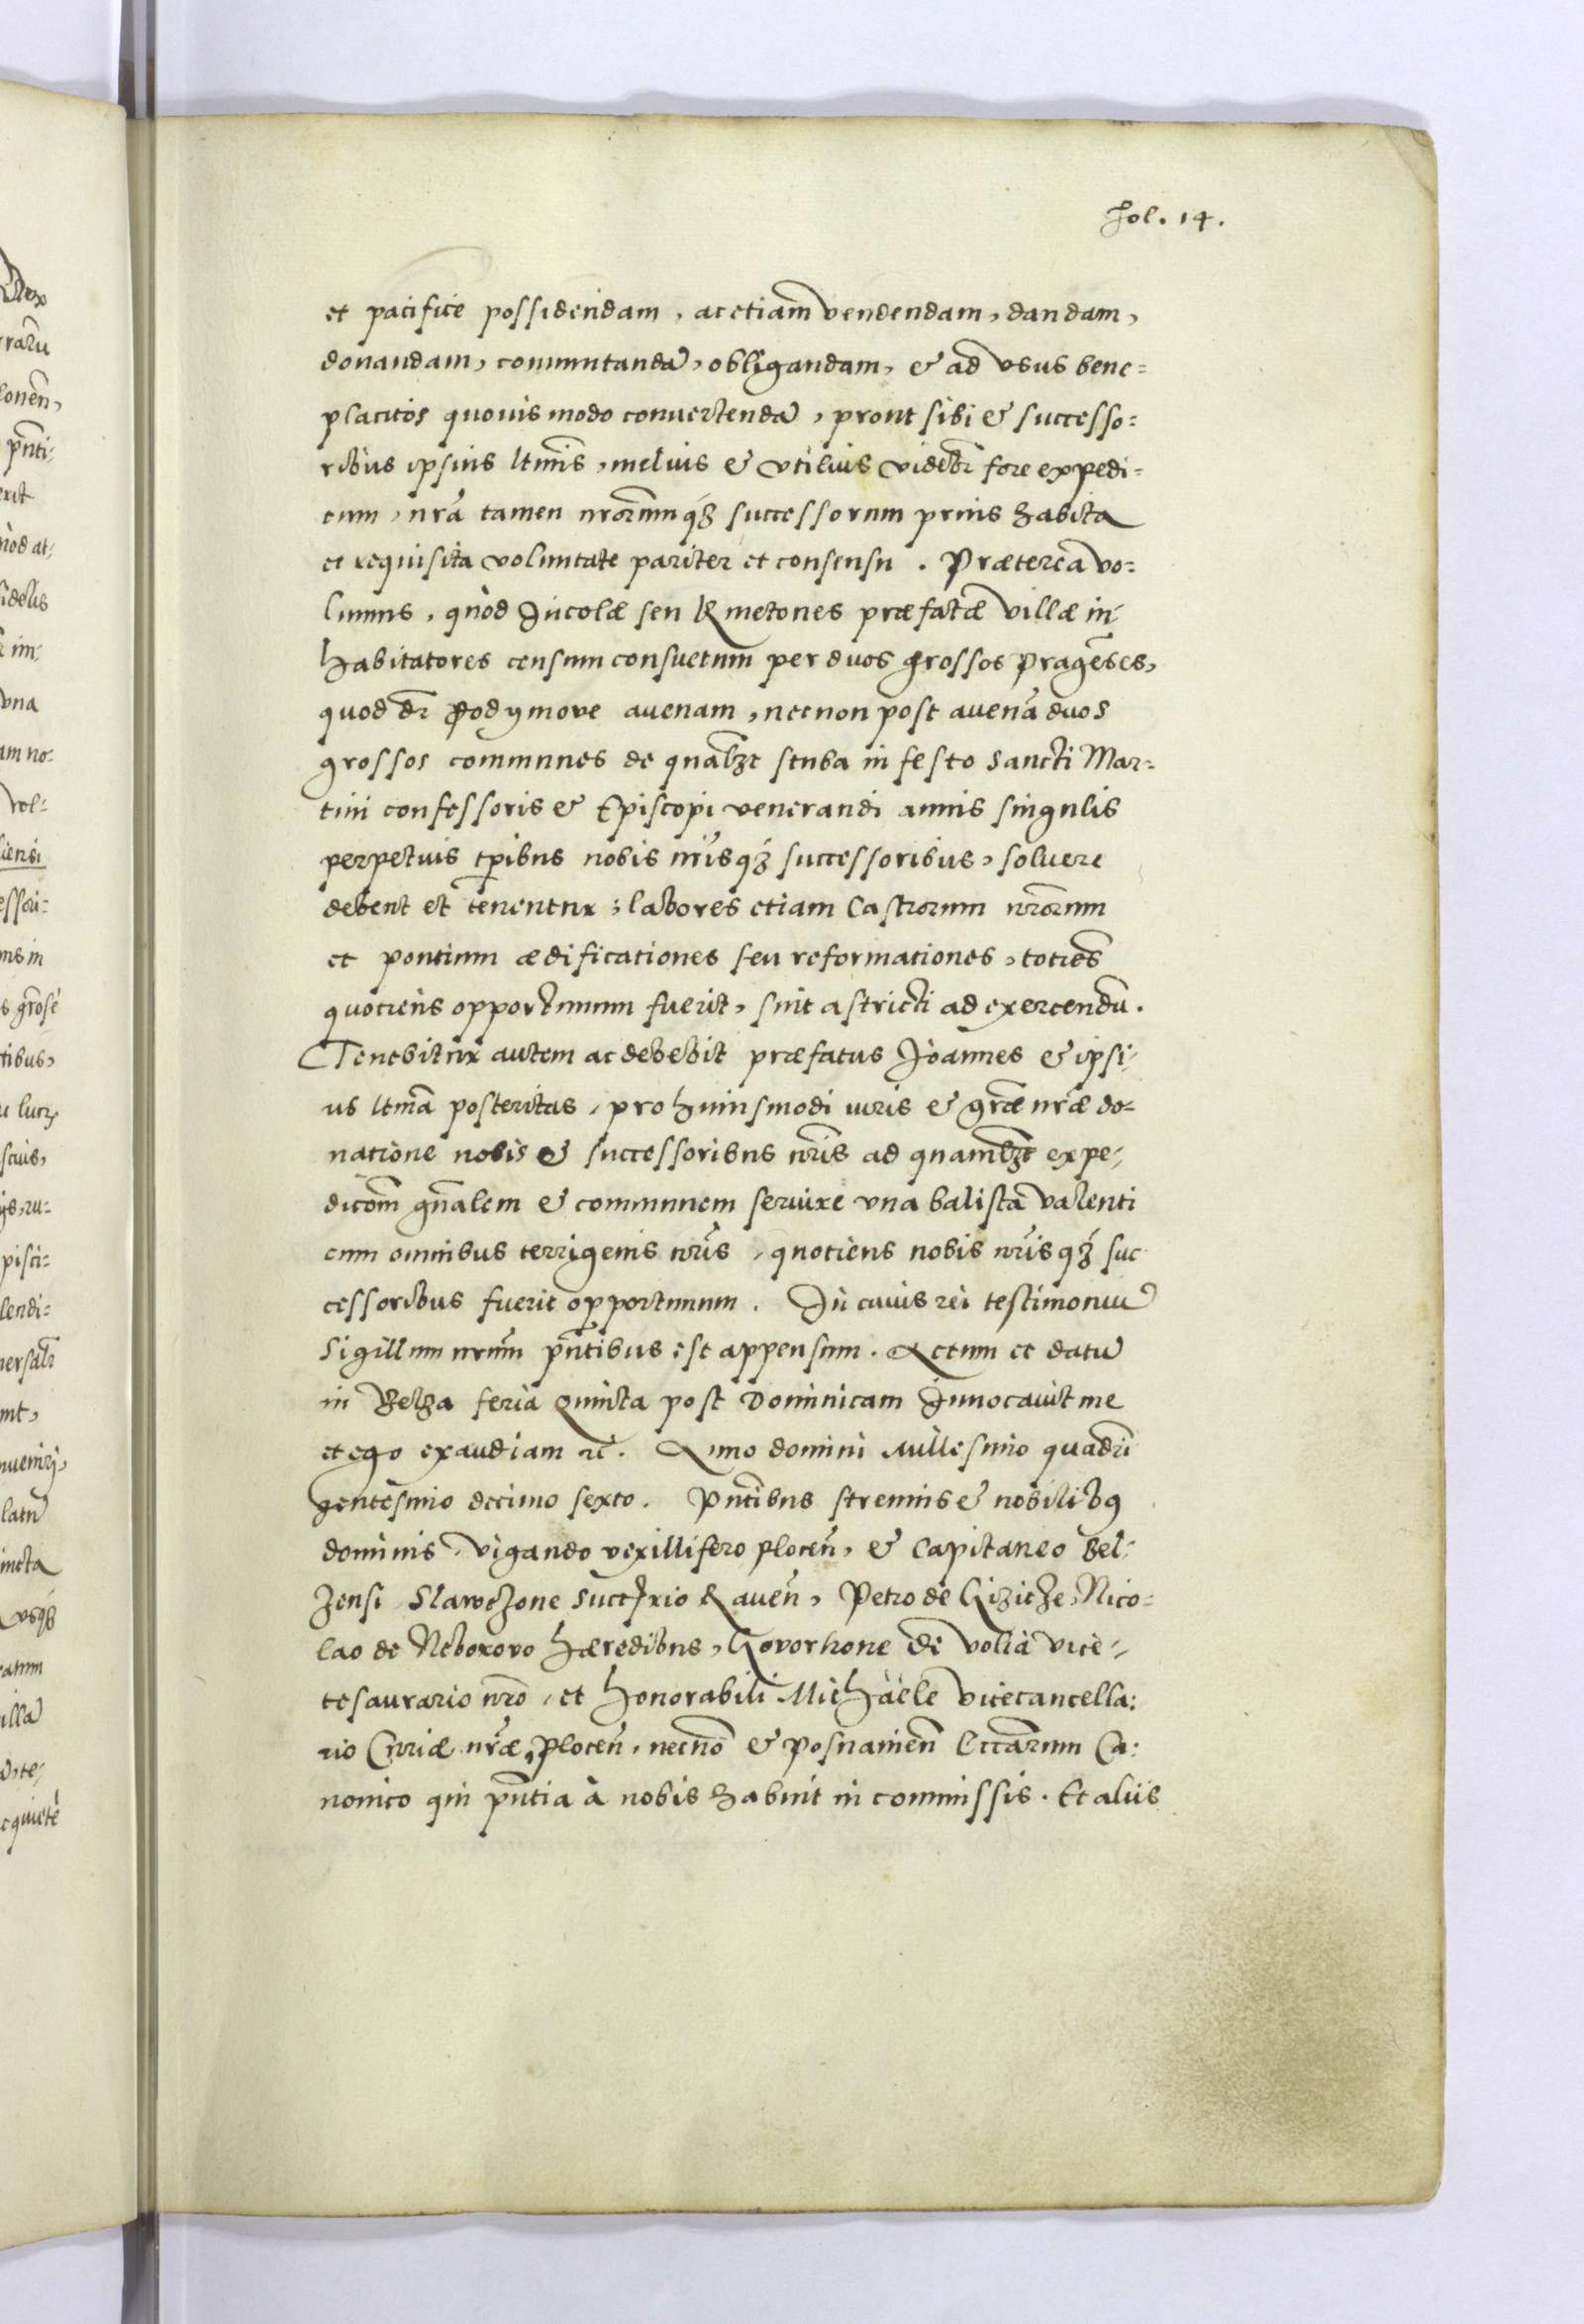 Fol. 14.
et pacifice possidendam, ac etiam vendendam, dandam,
donandam, commutandā, obligandam, & ad vsus bene=
placitos quovis modo convertendā, prout sibi & successo=
ribus ipsius ltmīs, melius & vtilius videbr̄ fore expedi=
tum, nrā tamen nrorumq́ successorum prius habita
et requisita voluntate pariter et consensu. Præterea vo=
lumus, quòd Incolæ seu Kmetones præfatæ villæ in-
habitatores censum consuetum per duos grossos Pragēses,
quod dr̄ Podymove avenam, necnon post avenā duos
grossos communes de qualꝫt stuba in festo Sancti Mar=
tini confessoris & Episcopi venerandi annis singulis
perpetuis tp̄ibus nobis nrīsq́ successoribus, solvere
debent et tenentur; labores etiam Castrorum nrorum
et pontium ædificationes seu reformationes, toties
quotiens opportunum fuerit, sint astricti ad exercendū.
Tenebitur autem ac debebit præfatus Ioannes & ipsi-
us ltmā posteritas, pro huiusmodi iuris & grāæ nrāæ do-
natione nobis & successoribus nrīs ad quamlꝫt expe-
dicōm gnālem & communem servire vna balista valenti
cum omnibus terrigenis nrīs, quotiens nobis nrīsq́ suc
cessoribus fuerit opportunum. In cuius rei testimoniū
Sigillum nrum pn̄tibus est appensum. Actum et datū
in Belza feria quinta post Dominicam Innocavit me
et ego exaudiam rc̄. Anno domini Millesimo quadri
gentesimo decimo sexto. Pn̄tibus strenuis & nobilibꝰ
dominis, Vigando vexillifero plocen̄, & Capitaneo Bel-
zensi Slawczone Succam̄rio Raven̄, Petro de Gizicze, Nico=
lao de Neborovo hæredibus, Govorkone de volia vice-
tesaurario nrō, et honorabili Michäele vicecancella:
rio Curiæ nrāæ, Plocen̄, necnō & Posnanien̄ Eccārum Ca:
nonico qui pn̄tia à nobis habuit in commissis. Et aliis